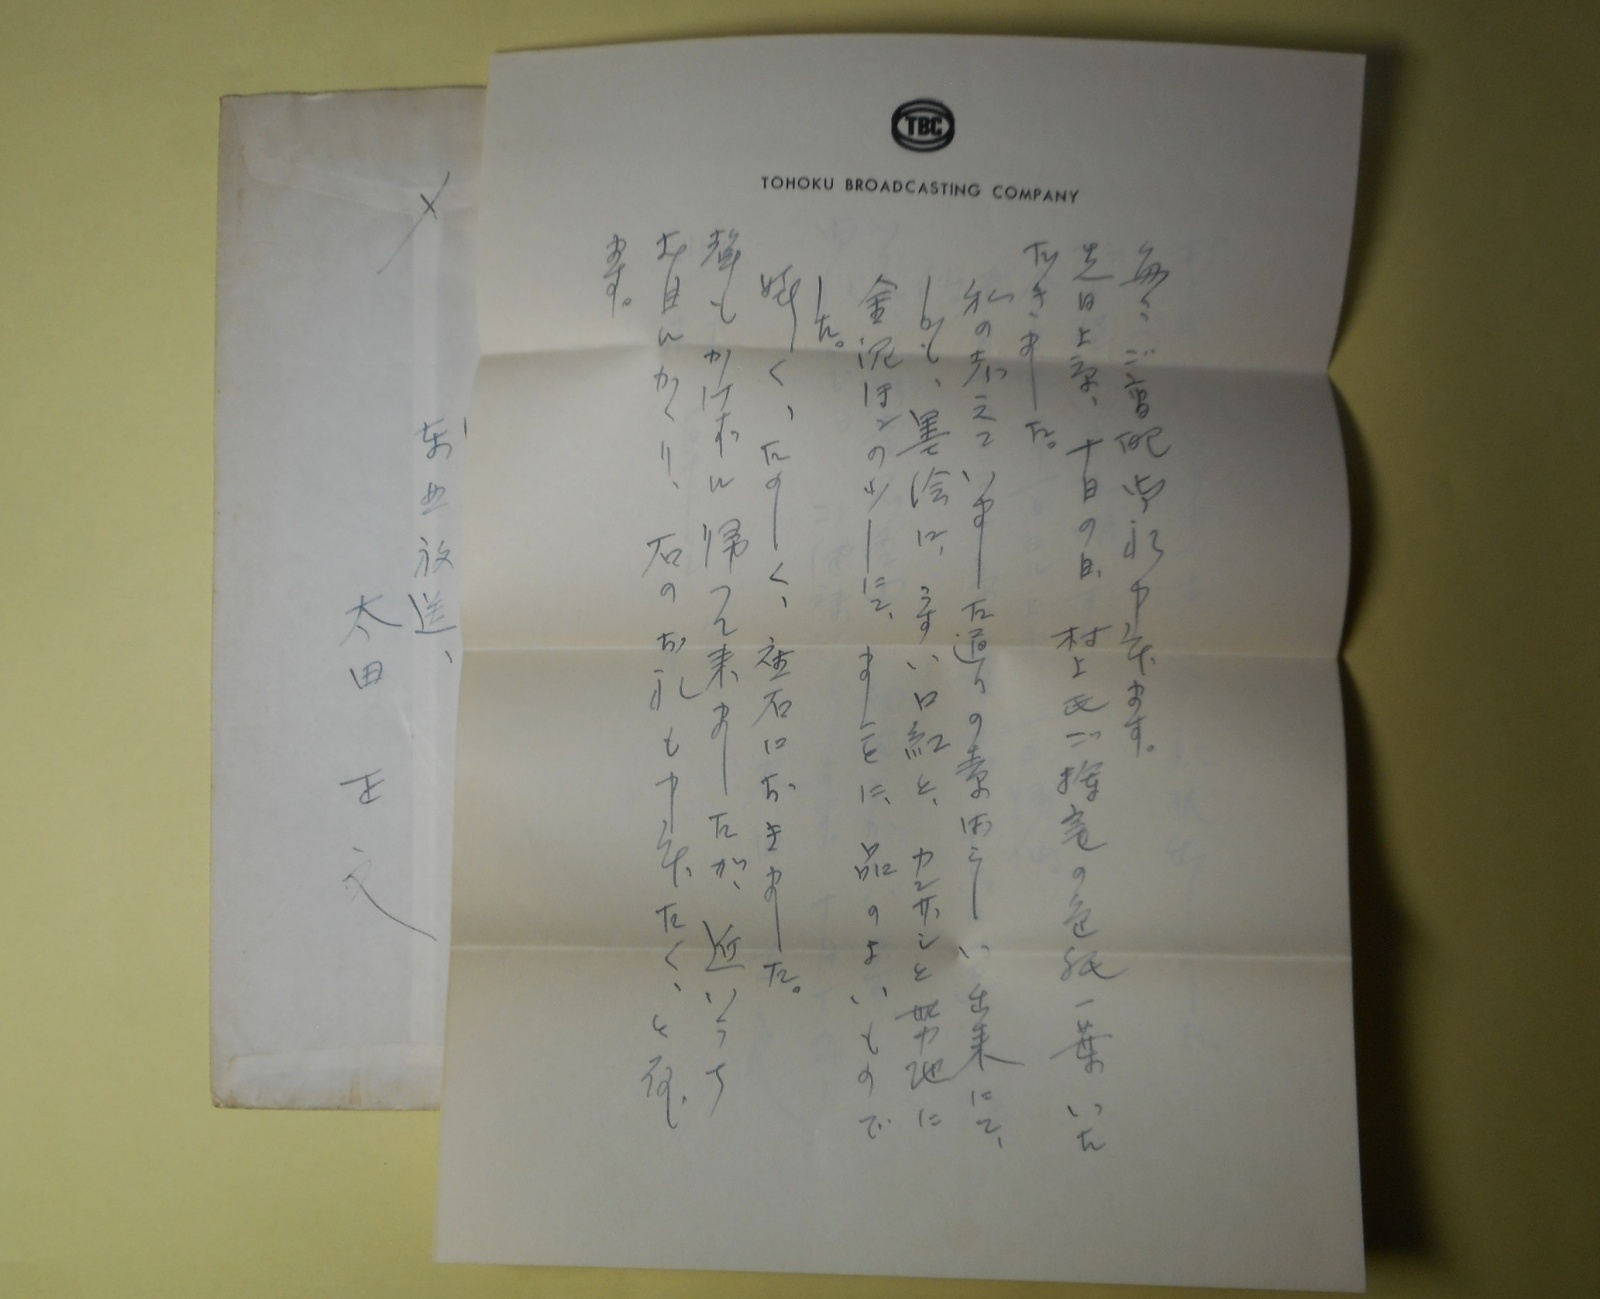 TBC
TOHOKU BROADCASTING COMPANY
毎々ご高配 申上ます。
先日上京、十日の日、村上氏ご揮毫の色紙一葉いた
だきました。
私の考えていました通りの素晴らしい出来にて、
しかも、墨絵に、うすい口紅と、カンザシと帯地に
金泥ほんの少しにて、まことに、品のよいもので
した。
嬉しく、たのしく、座右におきました。
声もかけずに帰って来ましたが、近いうち
お目にかかり、右のお礼も申上たく、と存
ます。
東北放送、
太田正文